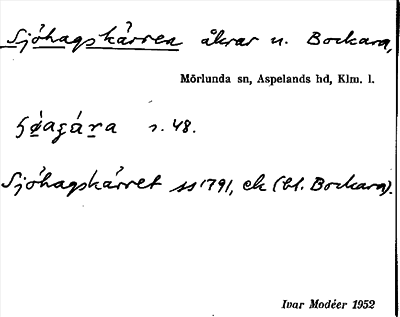 Sjöhagskärren åkrar n. Bockara,
Mörlunda sn, Aspelands hd, Klm. l.
s. 48.
Sjöhagskärret ss 1791, ek (bl. Bockara).
Ivar Modéer 1952